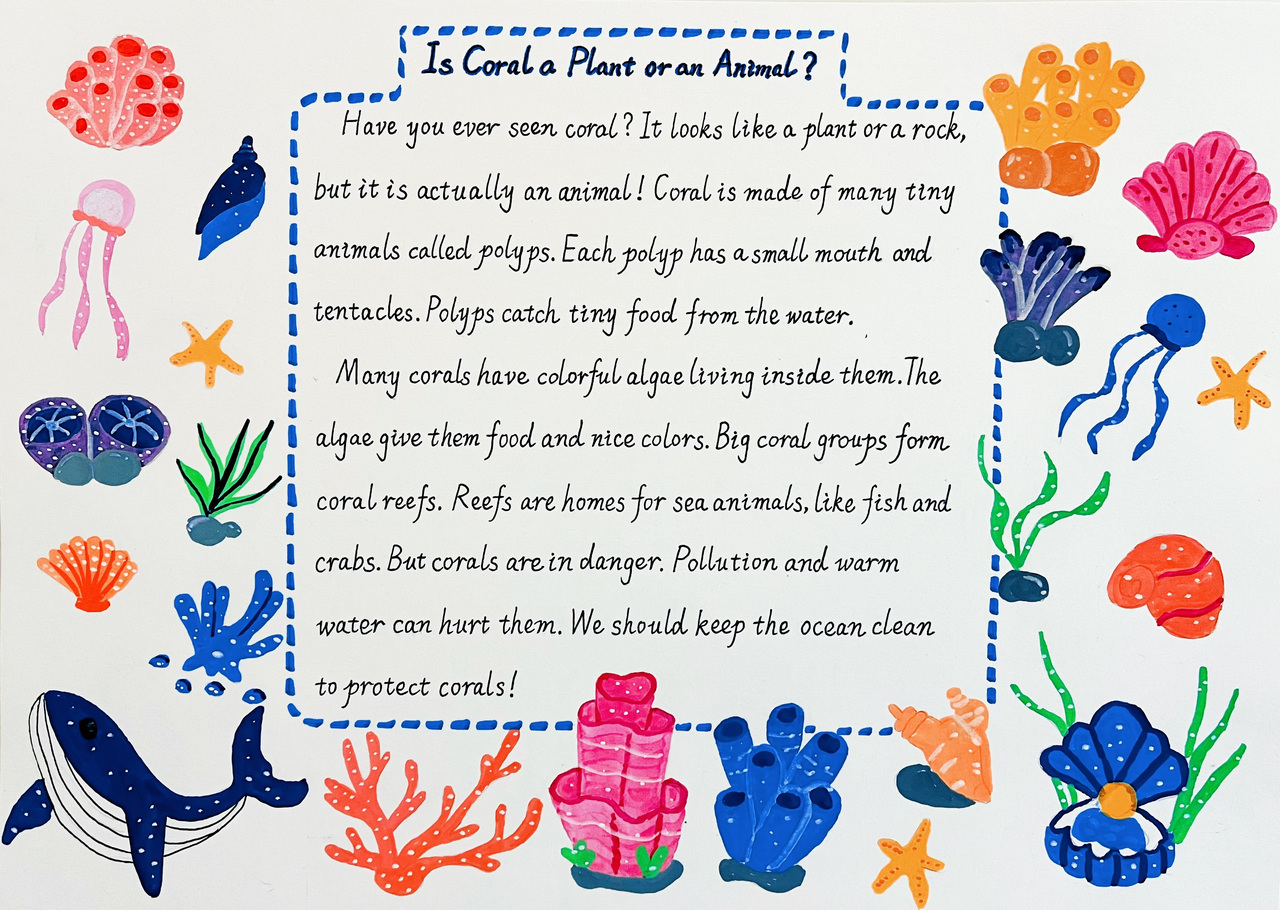 Is Coral a Plant or an Animal?
Have you ever seen coral? It looks like a plant or a rock,
but it is actually an animal! Coral is made of many tiny
animals called polyps. Each polyp has a small mouth and
tentacles. Polyps catch tiny food from the water.
Many corals have colorful algae living inside them. The
algae give them food and nice colors. Big coral groups form
coral reefs. Reefs are homes for sea animals, like fish and
crabs. But corals are in danger. Pollution and warm
water can hurt them. We should keep the ocean clean
to protect corals!